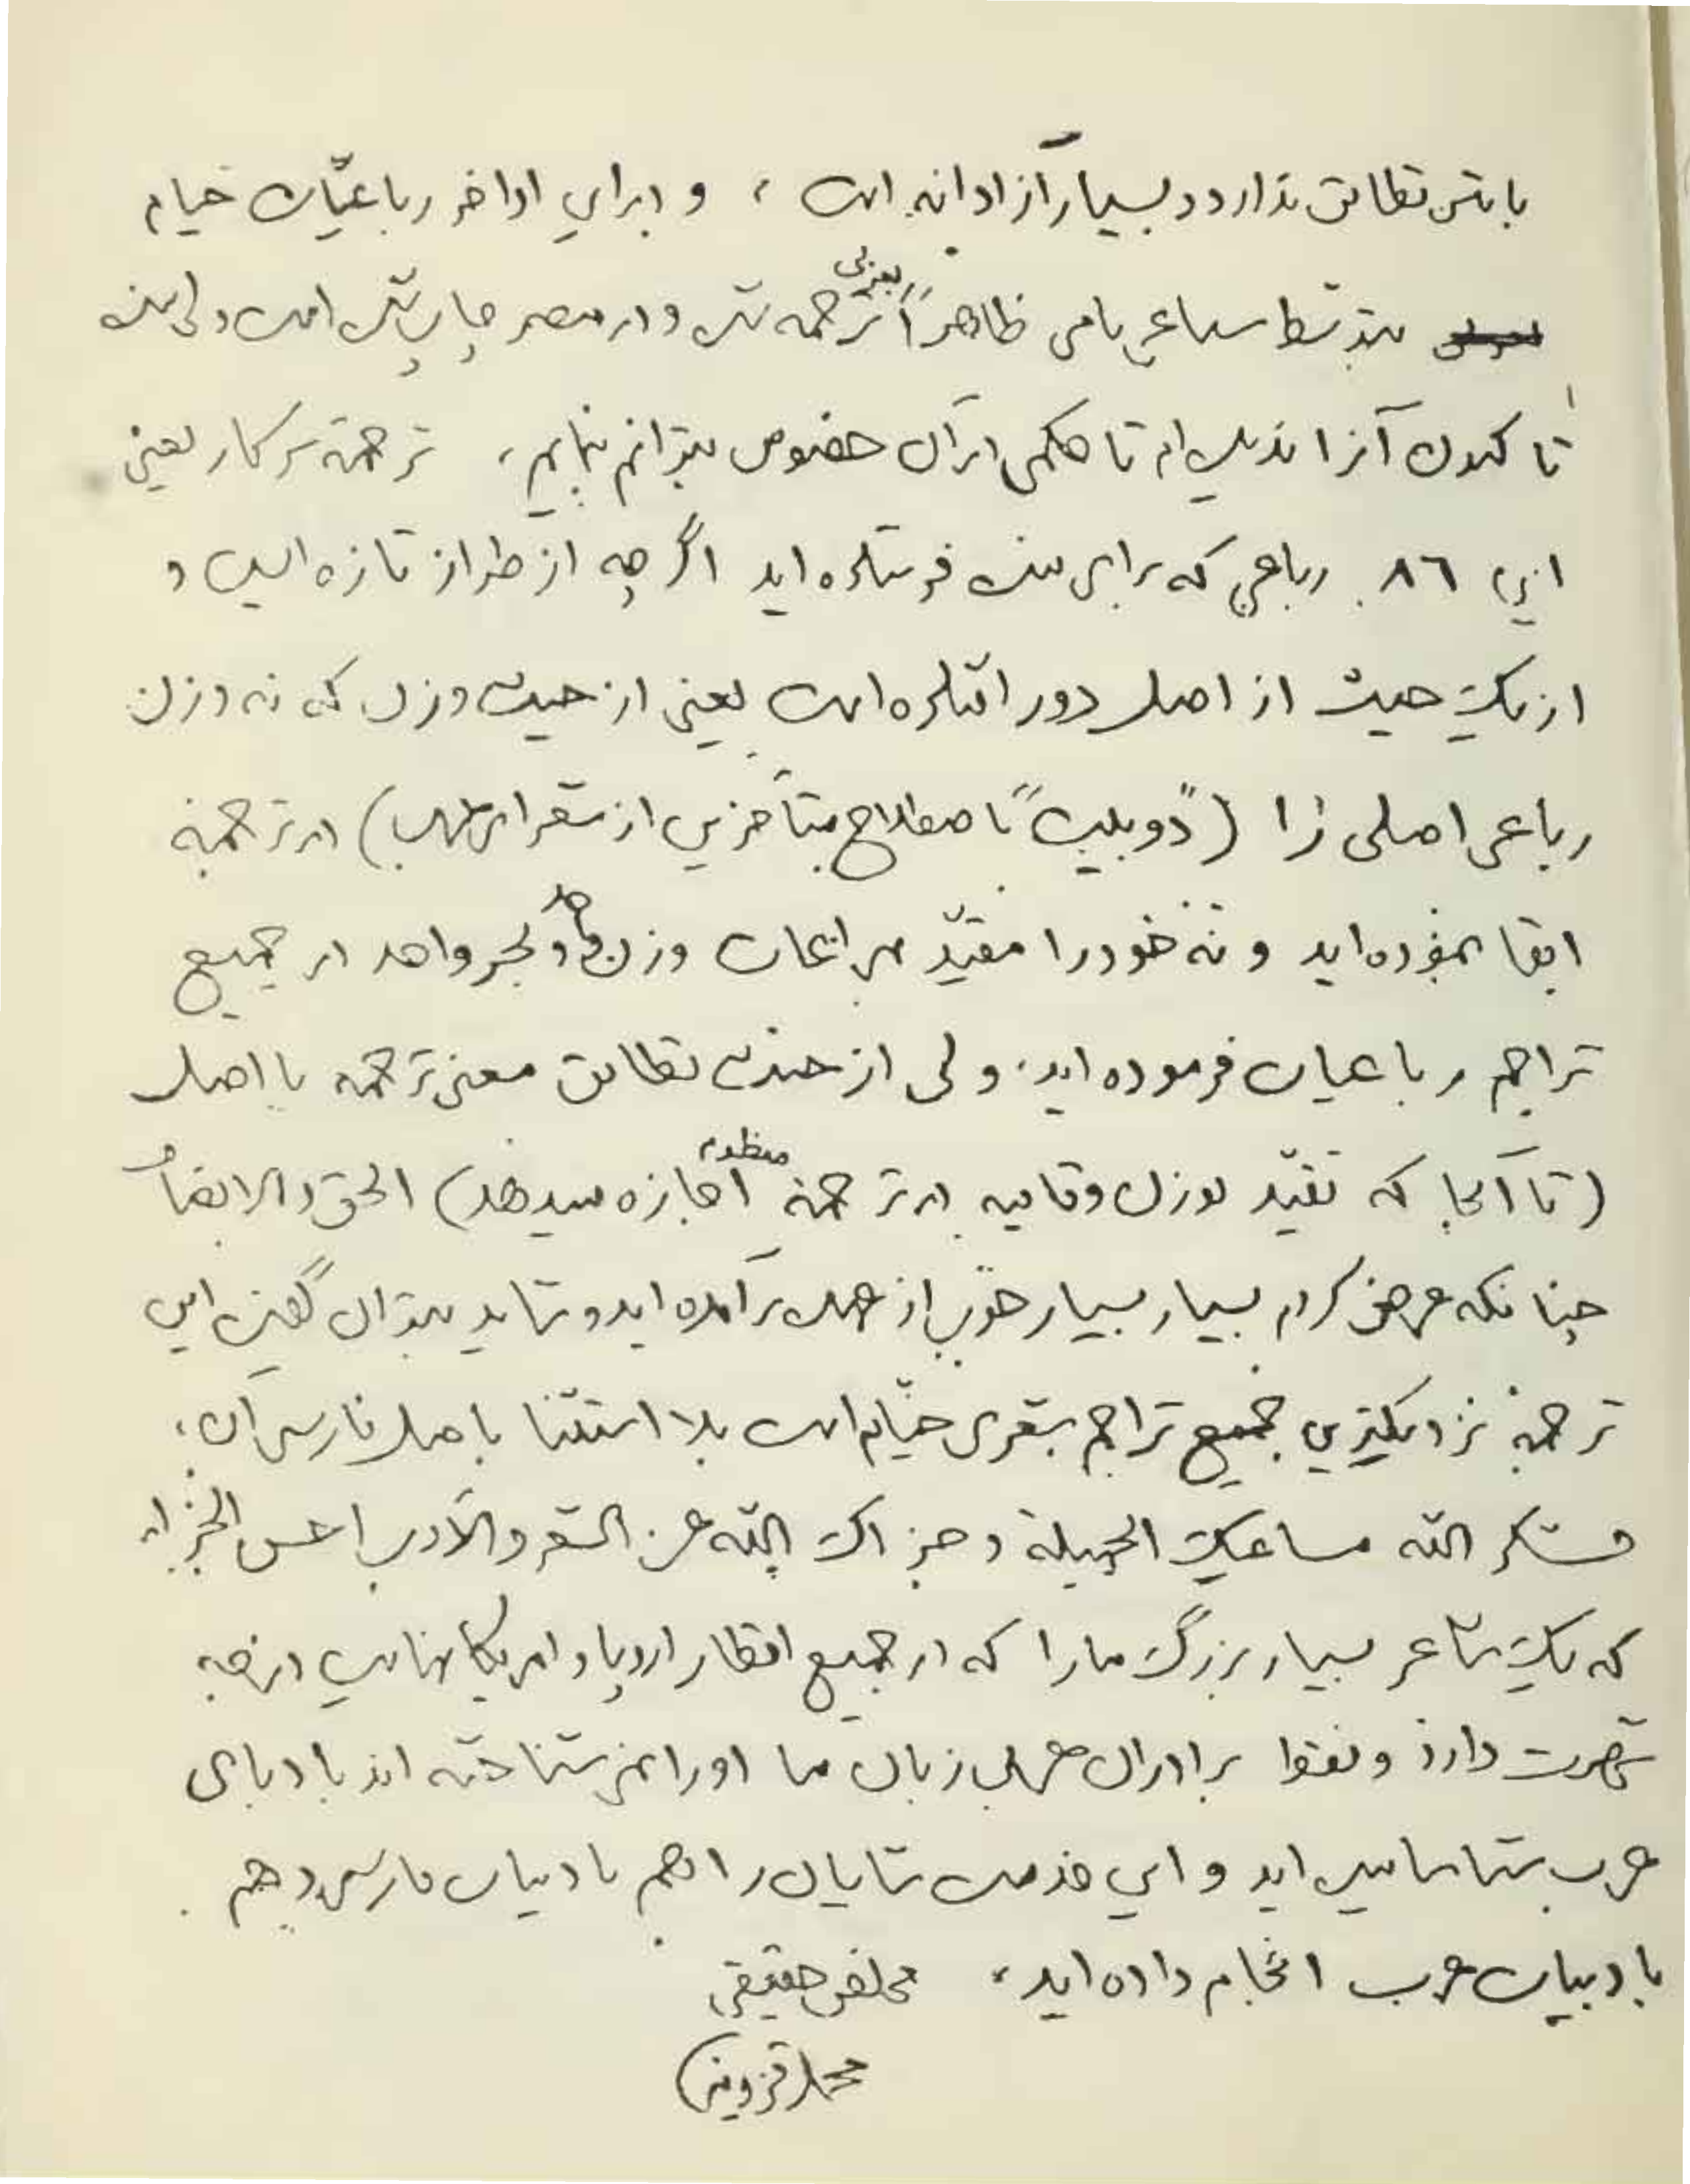 با متن تطابق ندارد و بسیار آزادانه است ، و در این اواخر رباعیّات خیام
بتوسّط سباعی نامی ظاهراً بعربی ترجمه شده و در مصر چاپ شده است ولی بنده
تا کنون آنرا ندیده‌ام تا حکمی در آن خصوص بتوانم بنمایم، ترجمهٔ سرکار یعنی
این ۸٦ رباعی که برای بنده فرستاده اید اگر چه از طراز تازه ایست و
از یک حیث از اصل دور افتاده است یعنی از حیث وزن که نه وزن
رباعی اصلی را («دوبیت» باصطلاح متأخرین از شعرای عرب) در ترجمه
ابقا نموده‌اید و نه خود را مقیّد بمراعات وزن واحد و بحر واحد در جمیع
تراجم رباعیات فرموده اید، ولی از حیث تطابق معنی ترجمه با اصل
(تا آنجا که تقیّد بوزن و قافیه در ترجمهٔ منظوم اجازه میدهد) الحق و الانصاف
چنانکه عرض کردم بسیار بسیار خوب از عهده برآمده اید و شاید بتوان گفت این
ترجمه نزدیکترین جمیع تراجم شعری خیّام است بلا استثنا باصل فارسی آن،
فشکر الله مساعیک الجمیلة و جزاک الله عن الشعر و الأدب احسن الجزاء
که یک شاعر بسیار بزرگ ما را که در جمیع اقطار اروپا و امریکا نهایت درجه
شهرت دارد و فقط برادران عرب زبان ما او را نمی شناخته اند بادبای
عرب شناسانیده اید و این خدمت شایان را هم بادبیات فارسی و هم
بادبیات عرب انجام داده اید، مخلص حقیقی
محمد قزوینی